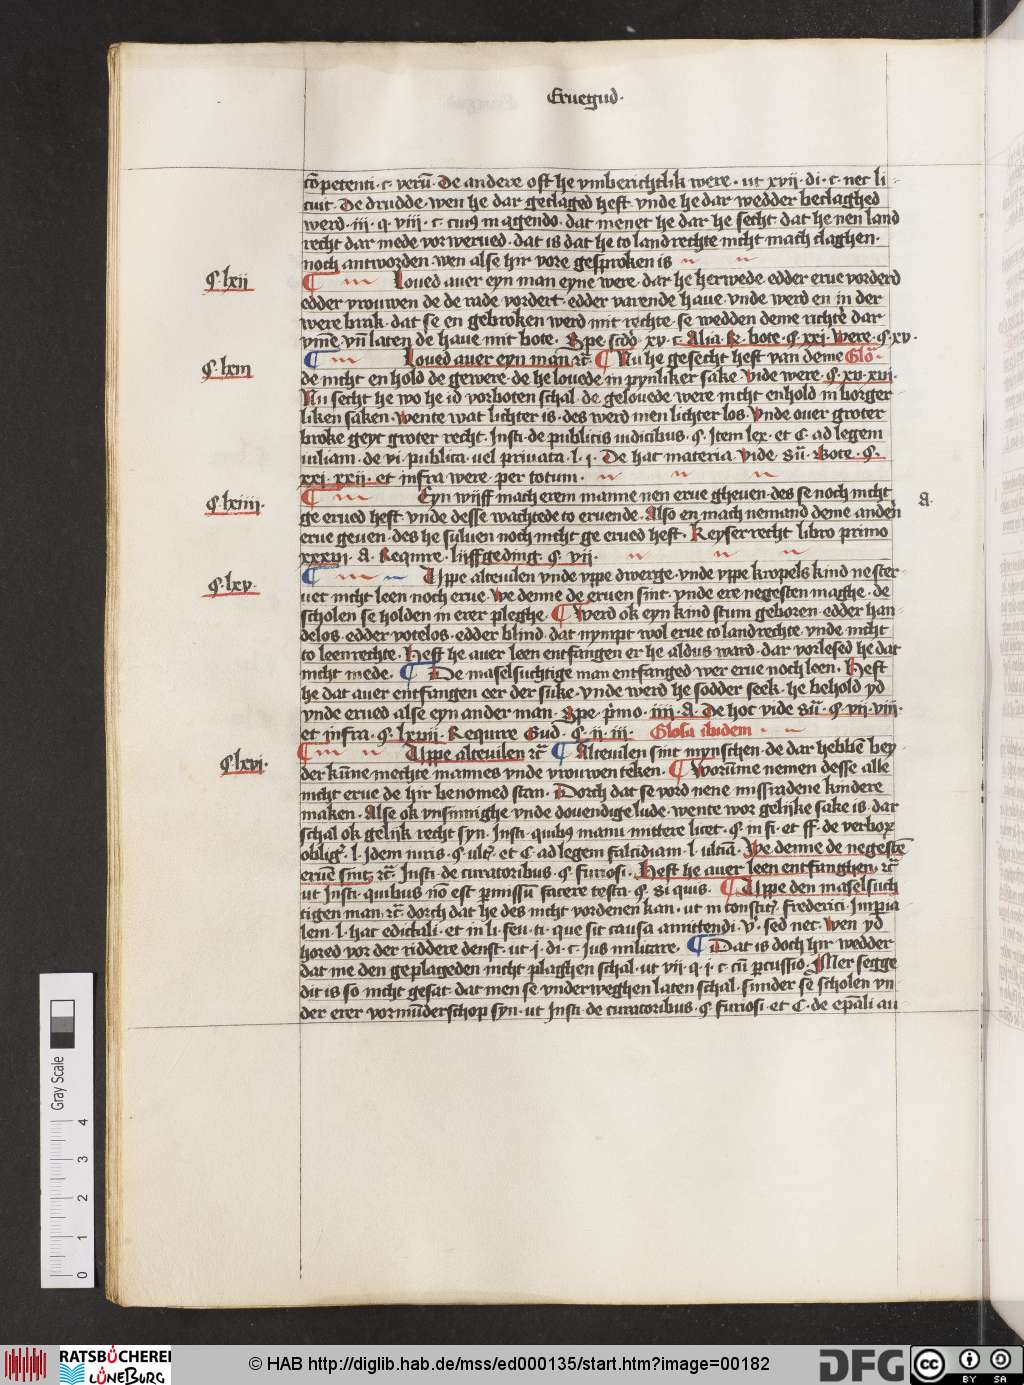 Eruegud·
co̅petenti · c · veru̅ · De andere oft he vmberichtlik were · ut xvij · di · c · nec li
cuit · De drudde · wen he dar geclaged heft vnde he dar wedder beclaghed
werd · iii · q · viii · c · cuiꝰ in agendo · dat menet he dar he secht dat he nen land
recht dar mede vorwerued · dat is dat he to landrechte nicht mach claghen ·
noch antworden · wen alse hir vore gesproken is
¶ lxii
Loued auer eyn man eyne were · dar he herwede edder erue vorderd
edder vrouwen de de rade vordert · edder varende haue · vnde werd en in der
were brak · dat se en gebroken werd mit rechte · se wedden deme richtẻ dar
vm̅e · vn̅ laten de haue mit bote · Spe · scd̅o · xv · c · Alia · R · bote · ¶ · xxi · Were · ¶ · xv ·
¶ lxiii
Loued auer eyn man ꝛc̅ ¶ Nu he gesecht heft van deme Glo̅ ·
de nicht en hold de gewere · de he louede in pynliker sake · Vide were · ¶ · xv · xvi ·
Nu secht he wo he id vorboten schal · de gelouede were nicht enhold in borger
liken saken · Wente wat lichter is · des werd men lichter los · Vnde ouer groter
broke geyt groter recht · Insti · de publicis iudicibus · ¶ · Item lex · et C · ad legem
iuliam · de vi · publica · uel priuata · l · j · De hac materia vide · su̅ · Bote · ¶ ·
xxi · xxii · et infra were per totum ·
¶ lxiiii ·
Eyn wijff mach erem manne nen erue gheuen · des se noch nicht
a ·
ge erued heft · vnde desse wachtede to eruende · Also en mach nemand deme andeṅ
erue geuen · des he suluen noch nicht ge erued heft · Keyserrecht libro primo
xxxvi · a · Require · lijffgeding · ¶ · vij ·
¶ lxv ·
Uppe alteuilen vnde vppe dwerge · vnde vppe kropels kind ne ster
uet nicht leen noch erue · We denne de eruen sint · vnde ere negesten maghe · de
scholen se holden in erer pleghe · ¶ Werd ok eyn kind stum geboren · edder han
delos · edder votelos · edder blind · dat nympt wol erue to landrechte · vnde nicht
to leenrechte · Heft he auer leen entfangen er he aldus ward · dar vorlesed he dat
nicht mede · ¶ De maselsuchtige man entfanged wer erue noch leen · Heft
he dat auer entfangen eer der suke · vnde werd he sodder seek · he behold yd
vnde erued alse eyn ander man · Spe · p̅mo · iiij · a · De hoc vide su̅ · ¶ · vij · viij ·
et infra · ¶ · lxvij · Require Gud · ¶ · ij · iij · Glosa ibidem
¶ lxvj ·
Uppe alteuilen ꝛc̅ ¶ Alteuilen sint mynschen · de dar hebbe̅ bey
der ku̅ne mechte mannes vnde vrouwen teken · ¶ Woru̅me nemen desse alle
nicht erue de hir benomed stan · Dorch dat se vord nene missradene kindere
maken · Alse ok vnsinnighe vnde douendige lude · wente wor gelijke sake is · dar
schal ok gelijk recht syn · Insti · quibꝰ manu mittere licet · ¶ · in fi · et ff · de verboꝝ
oblig̅ · l · Idem iuris · ¶ · ult̅ · et C · ad legem falcidiam · l · ultia̅ · We denne de negeste̅
erue̅ sint ꝛc̅ · Insti · de curatoribus · ¶ · furiosi · Heft he auer leen entfanghen · ꝛc̅
ut Insti · quibus no̅ est p̅missu̅ facere testa · ¶ · Si quis · ¶ Uppe den maselsuch
tigen man · ꝛc̅ · dorch dat he des nicht vordenen kan · ut in constit̅ · Frederici · Imp̅ia
lem · l · hac edictali · et in li · feu · ti · que sit causa amittendi · v̊ · sed nec · Wen yd
hored vor der riddere denst · ut j · di · c · Jus militare · ¶ Dat is doch hir wedder
dat me den geplageden nicht plaghen schal · ut vij · q · j · c · cu̅ p̅cussio · Mer segge
dit is so nicht gesat · dat men se vnderweghen laten schal · sunder se scholen vn
der erer vormu̅derschop syn · ut Insti · de curatoribus · ¶ · furiosi · et C · de ep̅ali au
Gray Scale
0 1 2 3 4
RATSBÜCHEREI
LÜNEBURG
© HAB http://diglib.hab.de/mss/ed000135/start.htm?image=00182
DFG
cc BY SA